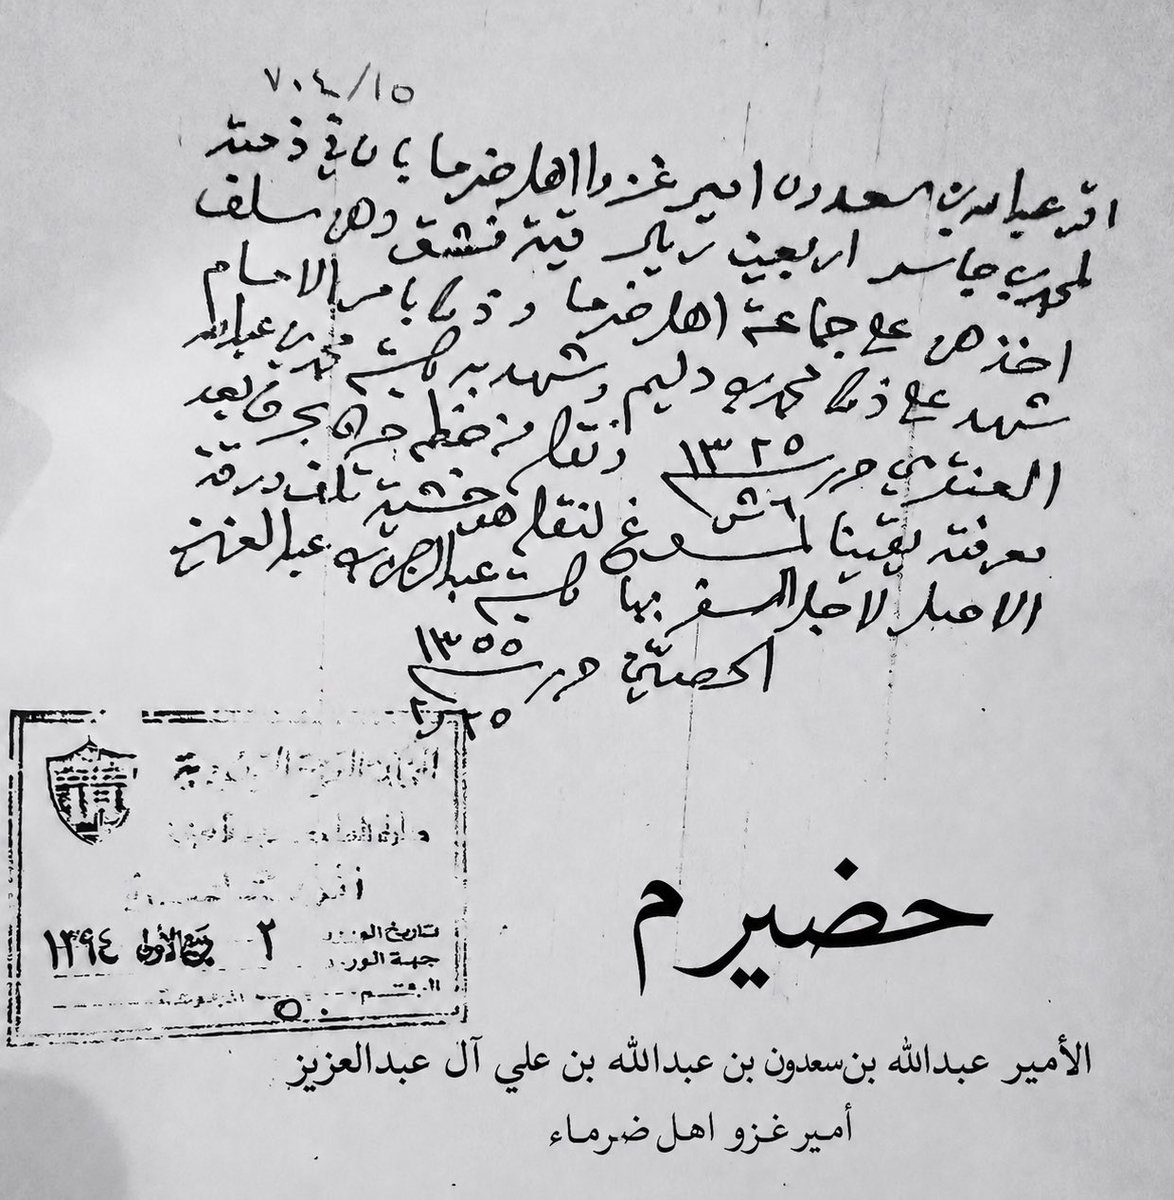 ٧٠٤/١٥
اقر عبدالله بن سعدون امير غزو اهل ضرما بان في ذمته
لمحمد بن جاسر اربعين ريال قيمة فشق وهن سلف
اخذهن على جماعة اهل ضرما وذلك بامر الامام
شهد على ذلك محمد بن دليم وشهد به كاتبه محمد بن عبدالله
العنقري حرر ١٣٢٥ ونقله من خطه حرفا بحرف بعد
٦ ش
معرفته يقينا لمسوغ لنقله هو خشية تلف ورقة
الاصل لاجل السفر بها كاتبه عبدالرحمن بن عبدالعزيز
الحصيّن حرر ١٣٥٥
تاريخ
جهة الورود
٢ ربيع الأول ١٣٩٤
حضيرم
الأمير عبدالله بن سعدون بن عبدالله بن علي آل عبدالعزيز
أمير غزو اهل ضرماء